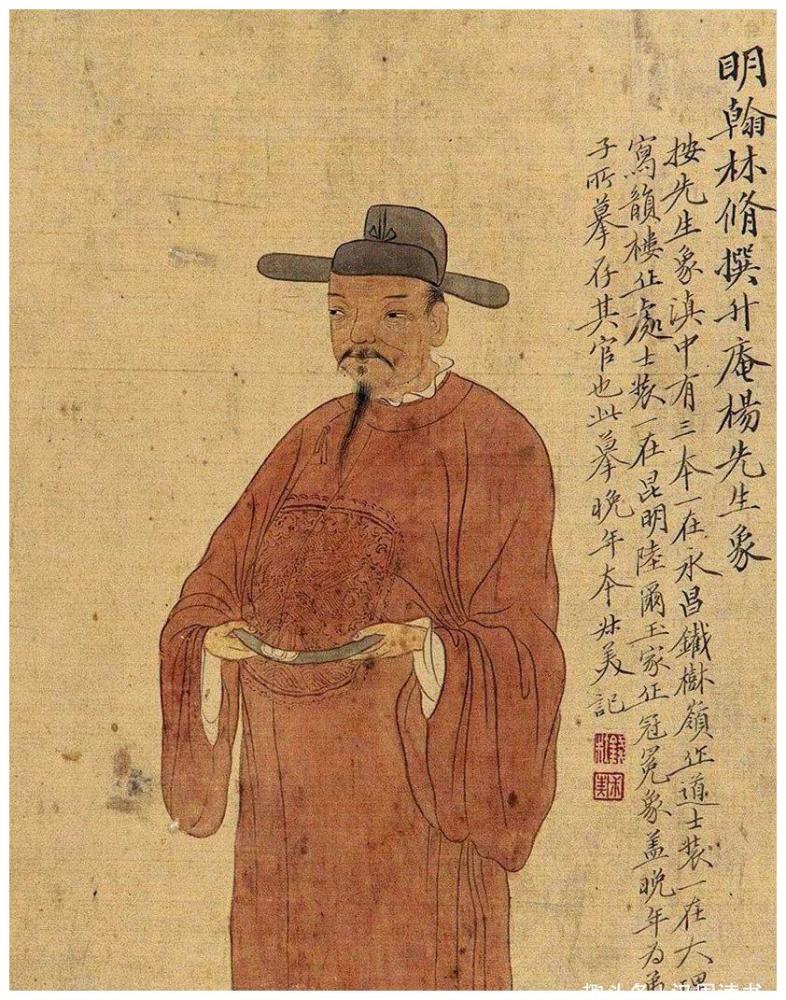 明翰林脩撰升庵楊先生象
按先生象滇中有三本一在永昌鐵樹嶺作道士装一在大理
寫韻樓作處士装一在昆明陸爾玉家作冠冕象盖晚年為弟
子所摹存其官也此摹晚年本尗美記